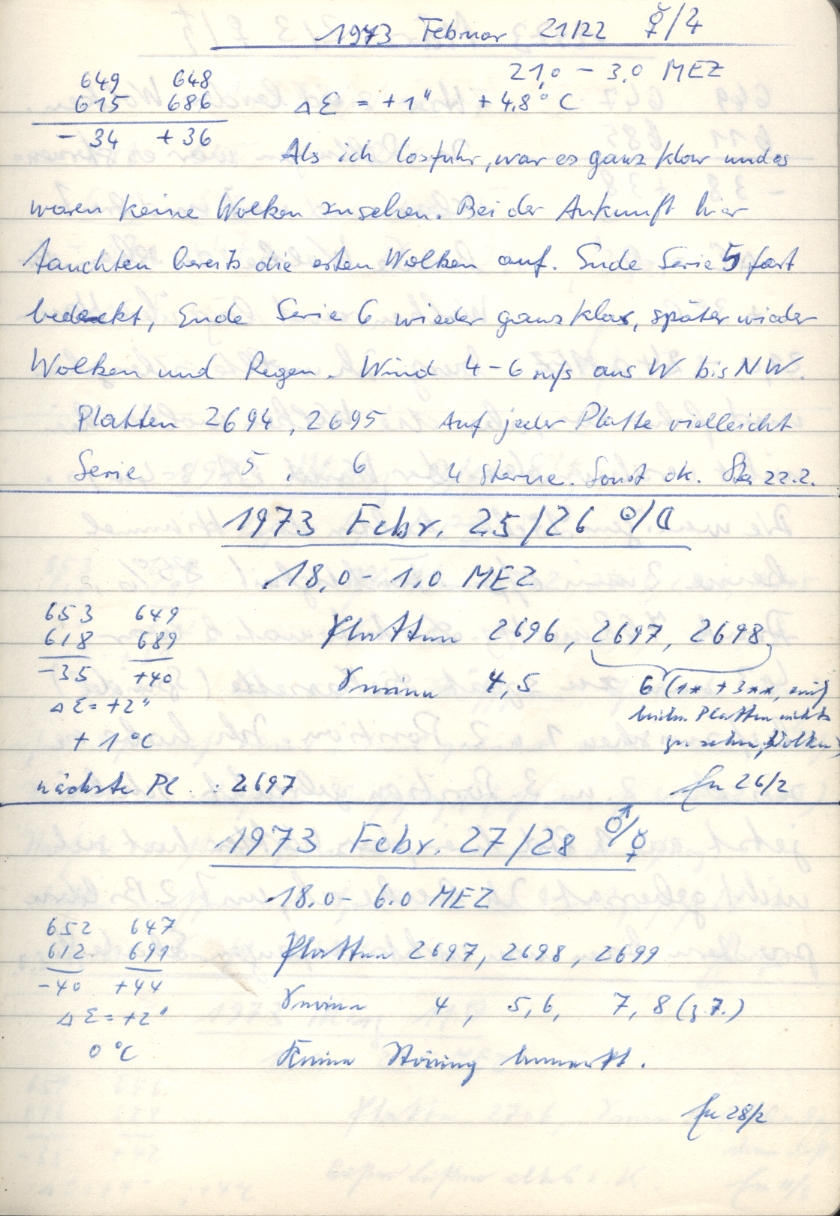 1973 Februar 21/22 ☿/♃
21,0 – 3,0 MEZ
649 648
615 686 ΔE = +1" +4,8° C
-34 +36
Als ich losfuhr, war es ganz klar und es
waren keine Wolken zu sehen. Bei der Ankunft hier
tauchten bereits die ersten Wolken auf. Ende Serie 5 fast
bedeckt, Ende Serie 6 wieder ganz klar, später wieder
Wolken und Regen. Wind 4-6 m/s aus W bis NW.
Platten 2694, 2695 Auf jeder Platte vielleicht
Serie 5, 6 4 Sterne. Sonst ok. 22.2.
1973 Febr. 25/26 ☉/☾
18,0 – 1,0 MEZ
653 649
618 689 Platten 2696, 2697, 2698
-35 +40 Serien 4,5 6 (1x + 3xx, auf
ΔE = +2" beiden Platten nichts
+ 1°C zu sehen, Wolken)
nächste Pl. : 2697 26/2
1973 Febr. 27/28 ♂/☿
18.0 – 6.0 MEZ
652 647
612 691 Platten 2697, 2698, 2699
-40 +44
ΔE = +2" Serien 4, 5,6, 7, 8 (z.T.)
0 °C Keine Störung bemerkt.
28/2